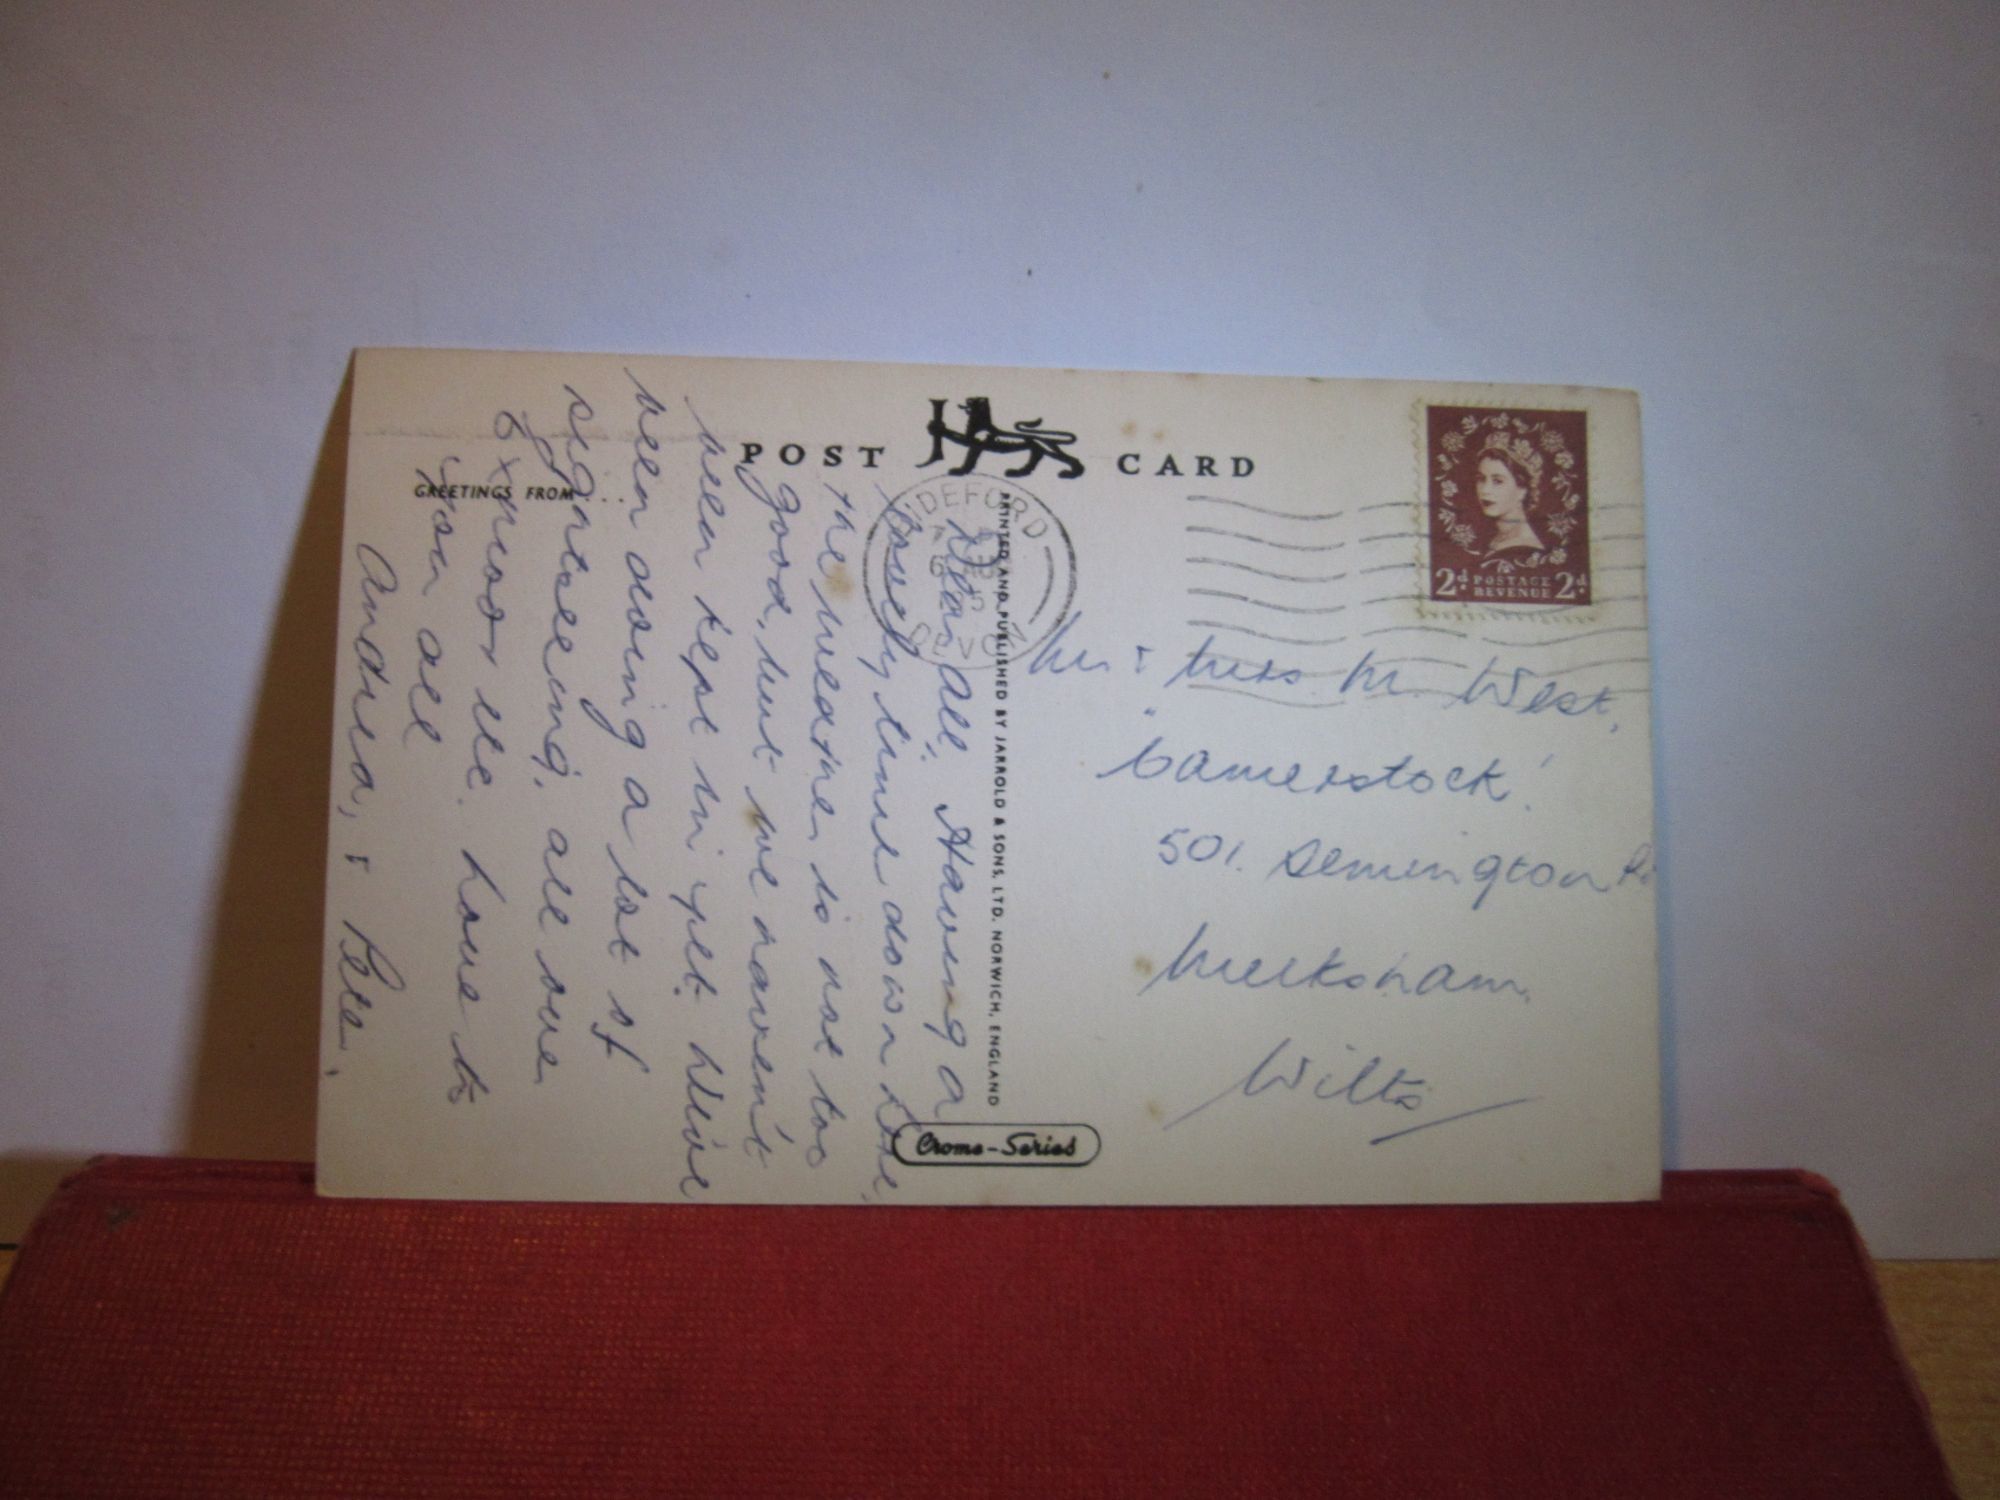 POST CARD
GREETINGS FROM....
Dear All, Having a
lovely time down here,
the weather is not too
good, but we haven't
been kept in yet. We've
been doing a lot of
sightseeing, all over
Exmoor etc. Love to
you all
Andrea, +
PRINTED AND PUBLISHED BY JARROLD & SONS, LTD. NORWICH, ENGLAND
Crome-Series
BIDEFORD
DEVON
2d POSTAGE REVENUE 2d
Mr + Mrs M. West,
"Camerstock"
501. Semington Rd
Melksham,
Wilts